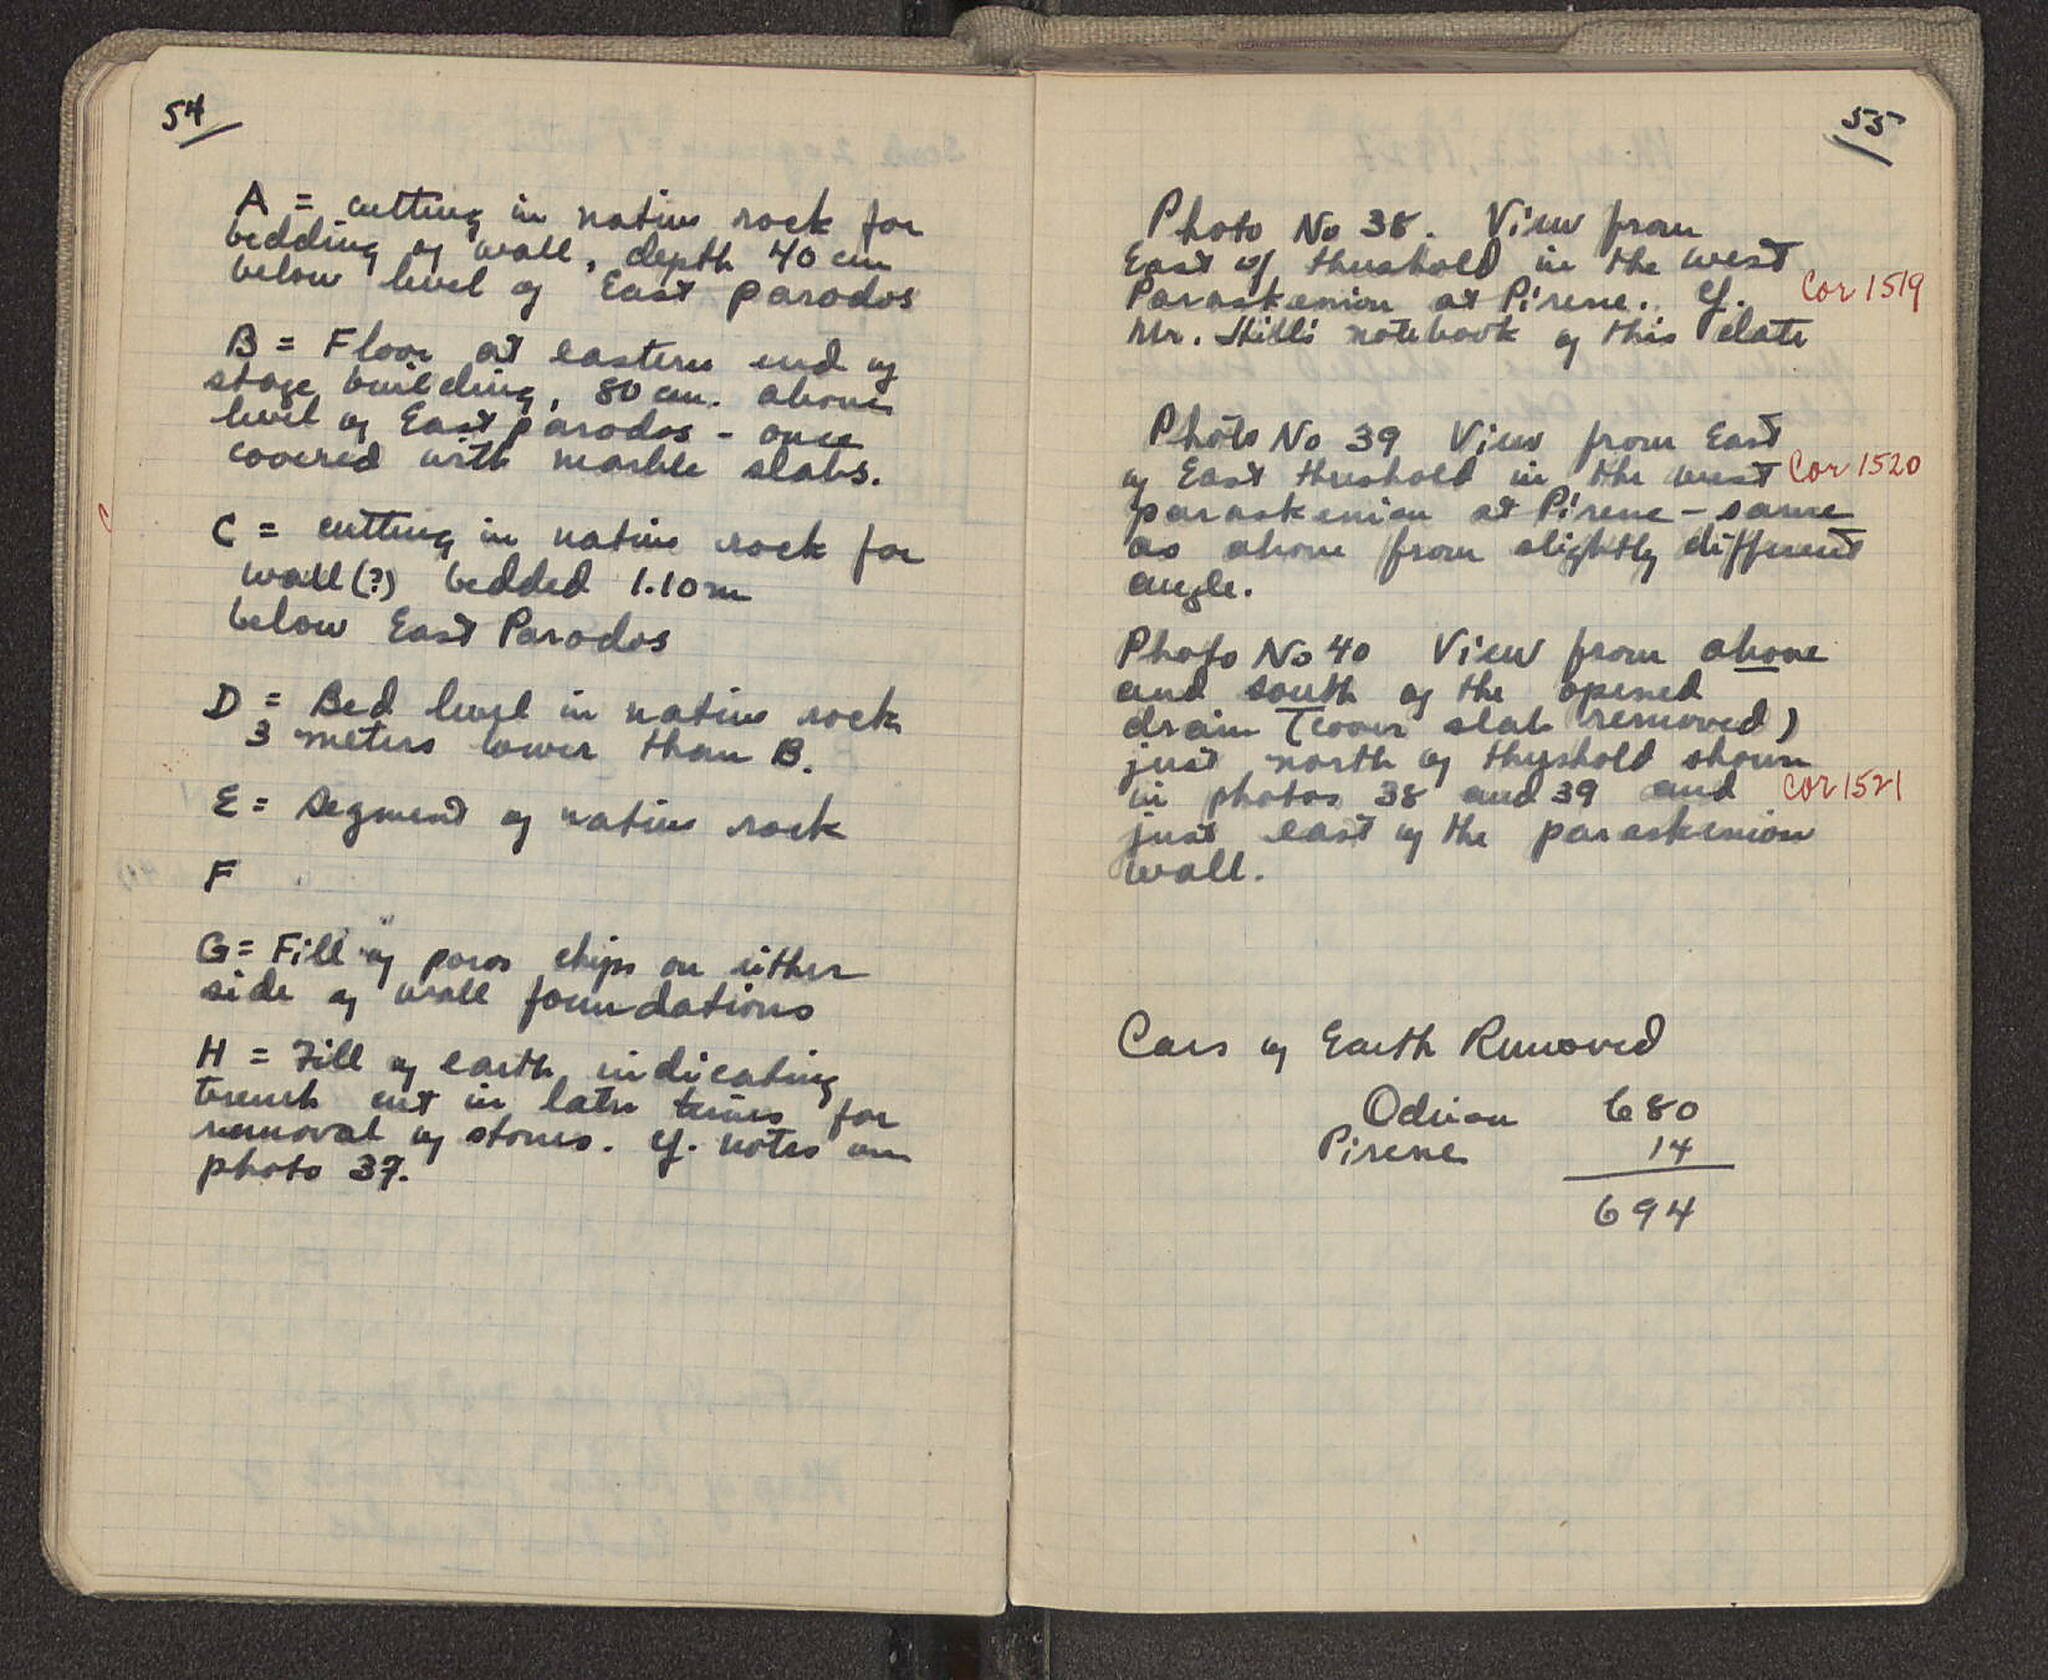 54
A = cutting in native rock for
bedding of wall, depth 40 cm
below level of East parodos
B = Floor at eastern end of
stage building, 80 cm. above
level of East parodos - once
covered with marble slabs.
C = cutting in native rock for
wall (?) bedded 1.10 m
below East Parodos
D = Bed level in native rock
3 meters lower than B.
E = Segment of native rock
F
G = Fill of poros chips on either
side of wall foundations
H = Fill of earth indicating
trench cut in later times for
removal of stones. cf. notes on
photo 37.
55
Photo No 38. View from
East of threshold in the west
Paraskenion at Pirene. cf.
Cor 1519
Mr. Hill's notebook of this date
Photo No 39 View from East
of East threshold in the west
Cor 1520
paraskenion at Pirene - same
as above from slightly different
angle.
Photo No 40 View from above
and south of the opened
drain (cover slab removed)
just north of threshold shown
in photos 38 and 39 and
Cor 1521
just east of the paraskenion
wall.
Cars of Earth Removed
Odeion 680
Pirene 14
694